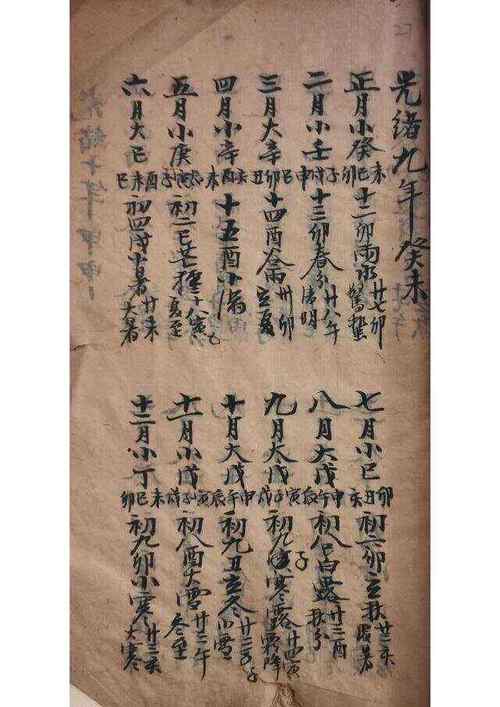 光緒九年癸未
正月小癸未巳卯十二卯雨水廿七卯驚蟄
二月小壬子戌申十三卯春分廿八午清明
三月大辛巳卯丑十四酉谷雨卅卯立夏
四月小辛亥酉未十五酉小滿
五月小庚辰寅子初二巳芒種十八寅夏至
六月大己酉未巳初四戌小暑廿未大暑
七月小己卯丑亥初六卯立秋廿一亥處暑
八月大戊申午辰初八白露廿三酉秋分
九月大戊寅子戌初九子寒露廿寅霜降
十月大戊申午辰初九丑立冬廿三子小雪
十一月小戊寅子戌初八酉大雪廿三午冬至
十二月小丁未巳卯初九卯小寒廿三亥大寒